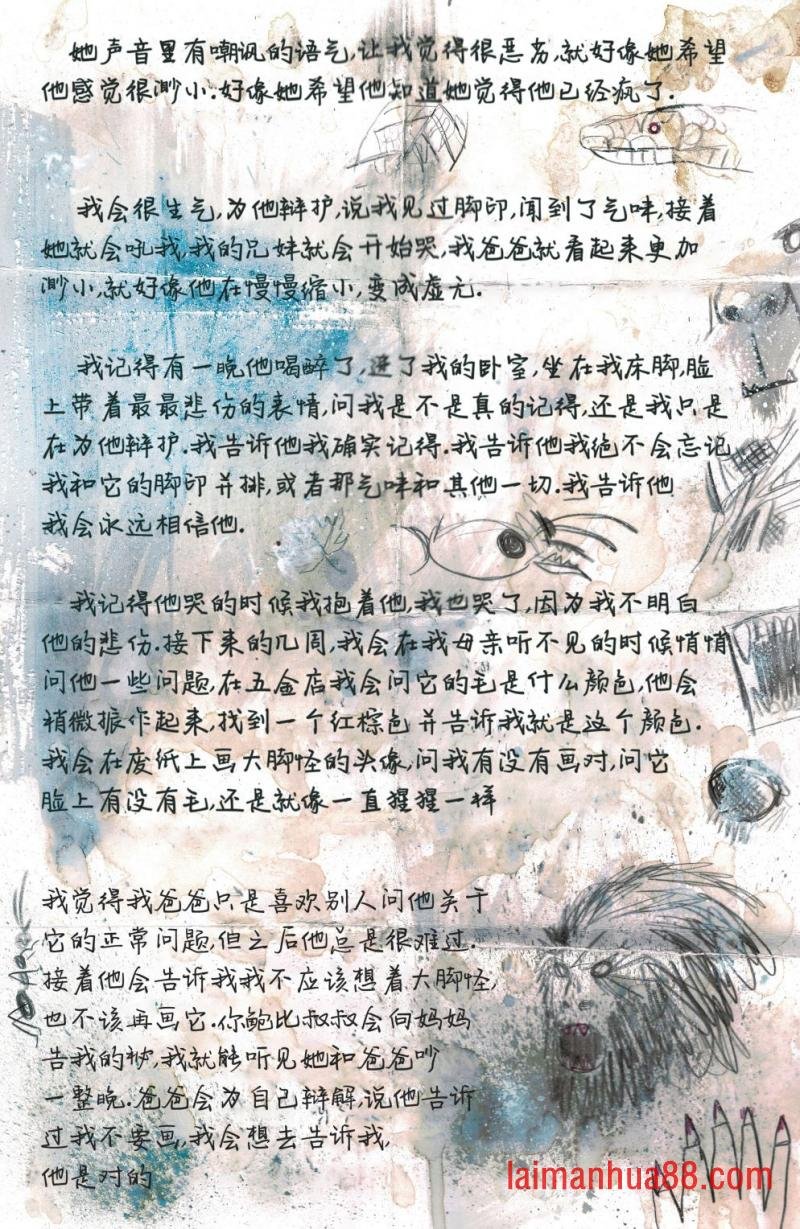 她声音里有嘲讽的语气,让我觉得很恶劣,就好像她希望
他感觉很渺小.好像她希望他知道她觉得他已经疯了.
我会很生气,为他辩护,说我见过脚印,闻到了气味,接着
她就会吼我,我的兄妹就会开始哭,我爸爸就看起来更加
渺小,就好像他在慢慢缩小,变成虚无.
我记得有一晚他喝醉了,进了我的卧室,坐在我床脚,脸
上带着最最悲伤的表情,问我是不是真的记得,还是我只是
在为他辩护.我告诉他我确实记得.我告诉他我绝不会忘记
我和它的脚印并排,或者那气味和其他一切.我告诉他
我会永远相信他.
我记得他哭的时候我抱着他,我也哭了,因为我不明白
他的悲伤.接下来的几周,我会在我母亲听不见的时候悄悄
问他一些问题,在五金店我会问它的毛是什么颜色,他会
稍微振作起来,找到一个红棕色并告诉我就是这个颜色.
我会在废纸上画大脚怪的头像,问我有没有画对,问它
脸上有没有毛,还是就像一直猩猩一样
我觉得我爸爸只是喜欢别人问他关于
它的正常问题,但之后他总是很难过.
接着他会告诉我我不应该想着大脚怪,
也不该再画它.你鲍比叔叔会向妈妈
告我的状,我就能听见她和爸爸吵
一整晚.爸爸会为自己辩解,说他告诉
过我不要画,我会想去告诉我,
他是对的
laimanhua88.com